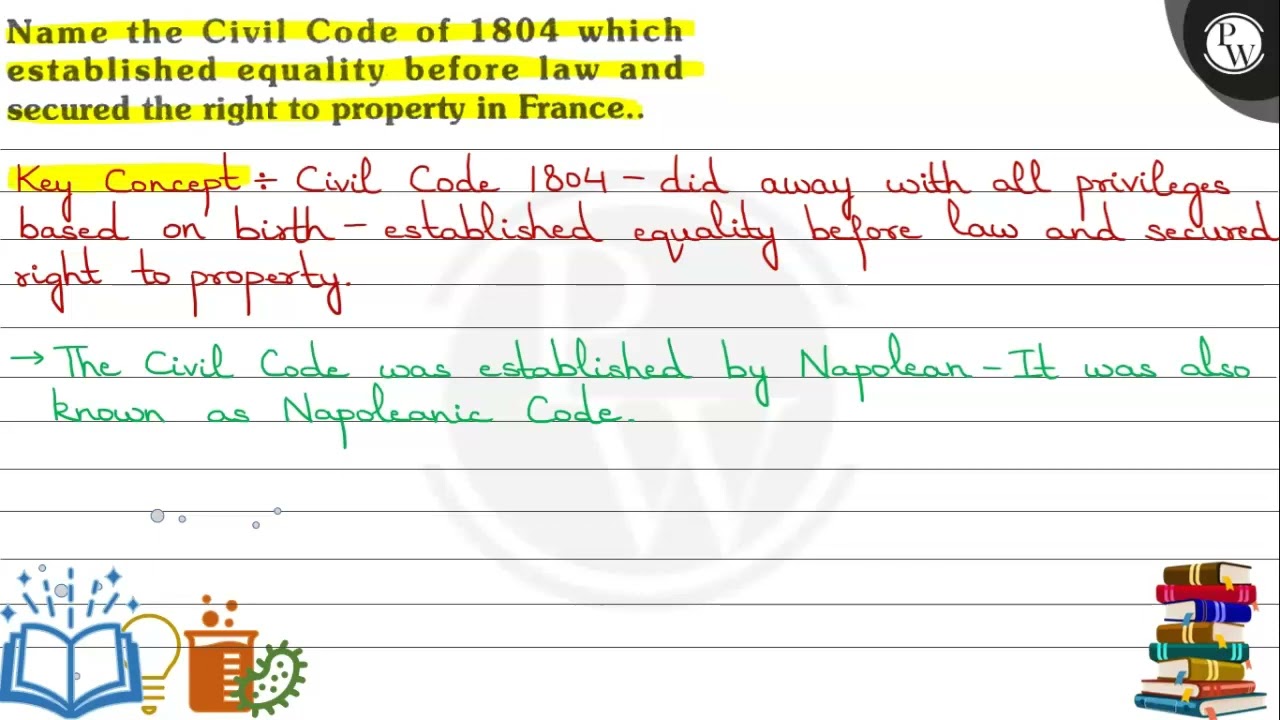 Name the Civil Code of 1804 which
established equality before law and
secured the right to property in France..
PW
Key Concept ÷ Civil Code 1804 - did away with all privileges
based on birth - established equality before law and secured
right to property.
→ The Civil Code was established by Napolean - It was also
known as Napoleanic Code.
PW